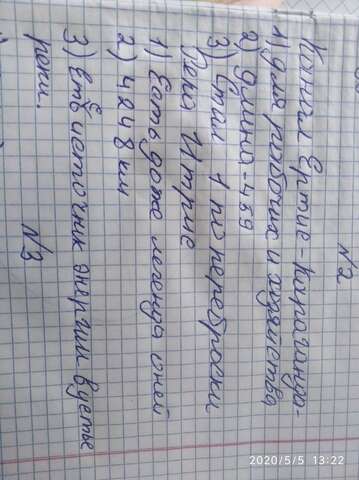 N2
Канал Ертис-Караганда-
1) для рабочих и хозяйства
2) Длина-459
3) Стал 1 по переброски
Река Иртис
1) Есть даже легенда о ней
2) 4248 км
3) Ест источник энергии в устье
реки.
N3
2020/5/5 13:22